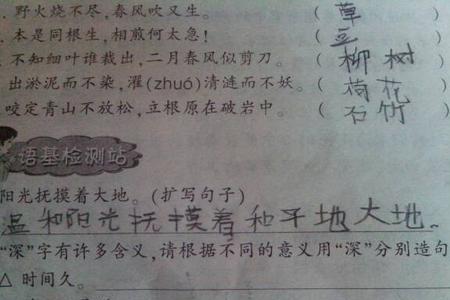 野火烧不尽,春风吹又生。 (草
本是同根生,相煎何太急! (豆
不知细叶谁裁出,二月春风似剪刀。 (柳树
出淤泥而不染,濯(zhuó)清涟而不妖。 (荷花
咬定青山不放松,立根原在破岩中。 (石竹
语基检测站
阳光抚摸着大地。(扩写句子)
温和阳光抚摸着和平地大地。
“深”字有许多含义,请根据不同的意义用“深”分别造句
△ 时间久。